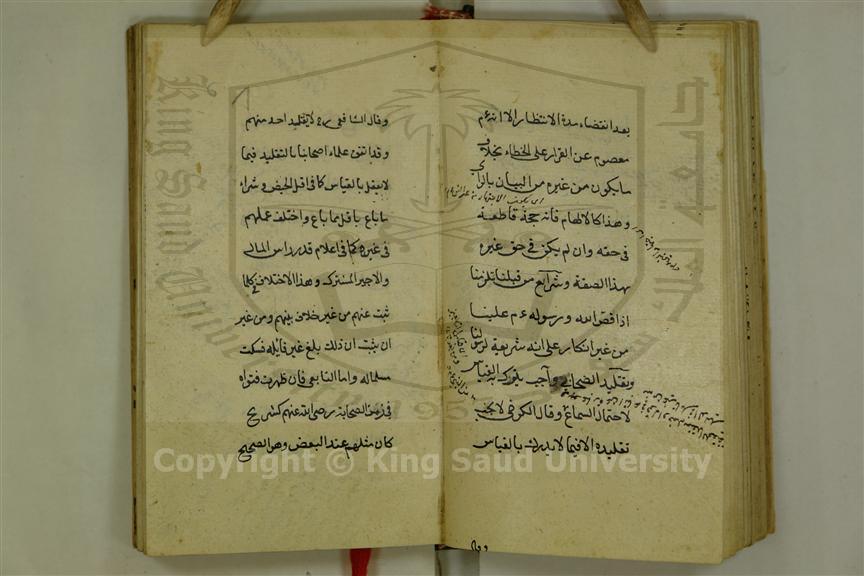 بعد انقضاء مدة الانتظار الا انه ءم
معصوم عن القرار على الخطاء بخلاف
ما يكون من غيره من البيان بالراي
وهذا كالالهام فانه حجة قاطعة
في حقه وان لم يكن في حق غيره
بهذا الصفة وشرايع من قبلنا تلزمنا
اذا قص الله ورسوله ءم علينا
من غير انكار على انه شريعة لرسولنا
وتقليد الصحابي واجب يترك به القياس
لاحتمال السماع وقال الكرخي لا يجب
تقليده الا فيما لا يدرك بالقياس
وقال
وقال الشافعي رح لا يقلد احد منهم
وقد اتفق علماء اصحابنا بالتقليد فيما
لا يعقل بالقياس كما في اقل الحيض وشراء
ما باع باقل مما باع واختلف عملهم
في غيره كما في اعلام قدر راس المال
والاجير المشترك وهذا الاختلاف في كل ما
ثبت عنهم من غير خلاف بينهم ومن غير
ان يثبت ان ذلك بلغ غير قايله فسكت
مسلما له واما التابعي فان ظهرت فتواه
في زمن الصحابة رضى الله عنهم كشريح
كان مثلهم عند البعض وهو الصحيح
King Saud University
Copyright © King Saud University